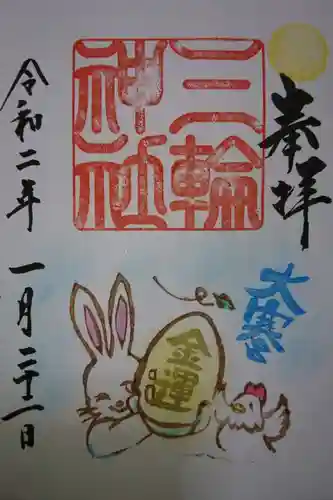 奉拝
三輪
神社
大寒
金運
令和二年 一月二十一日